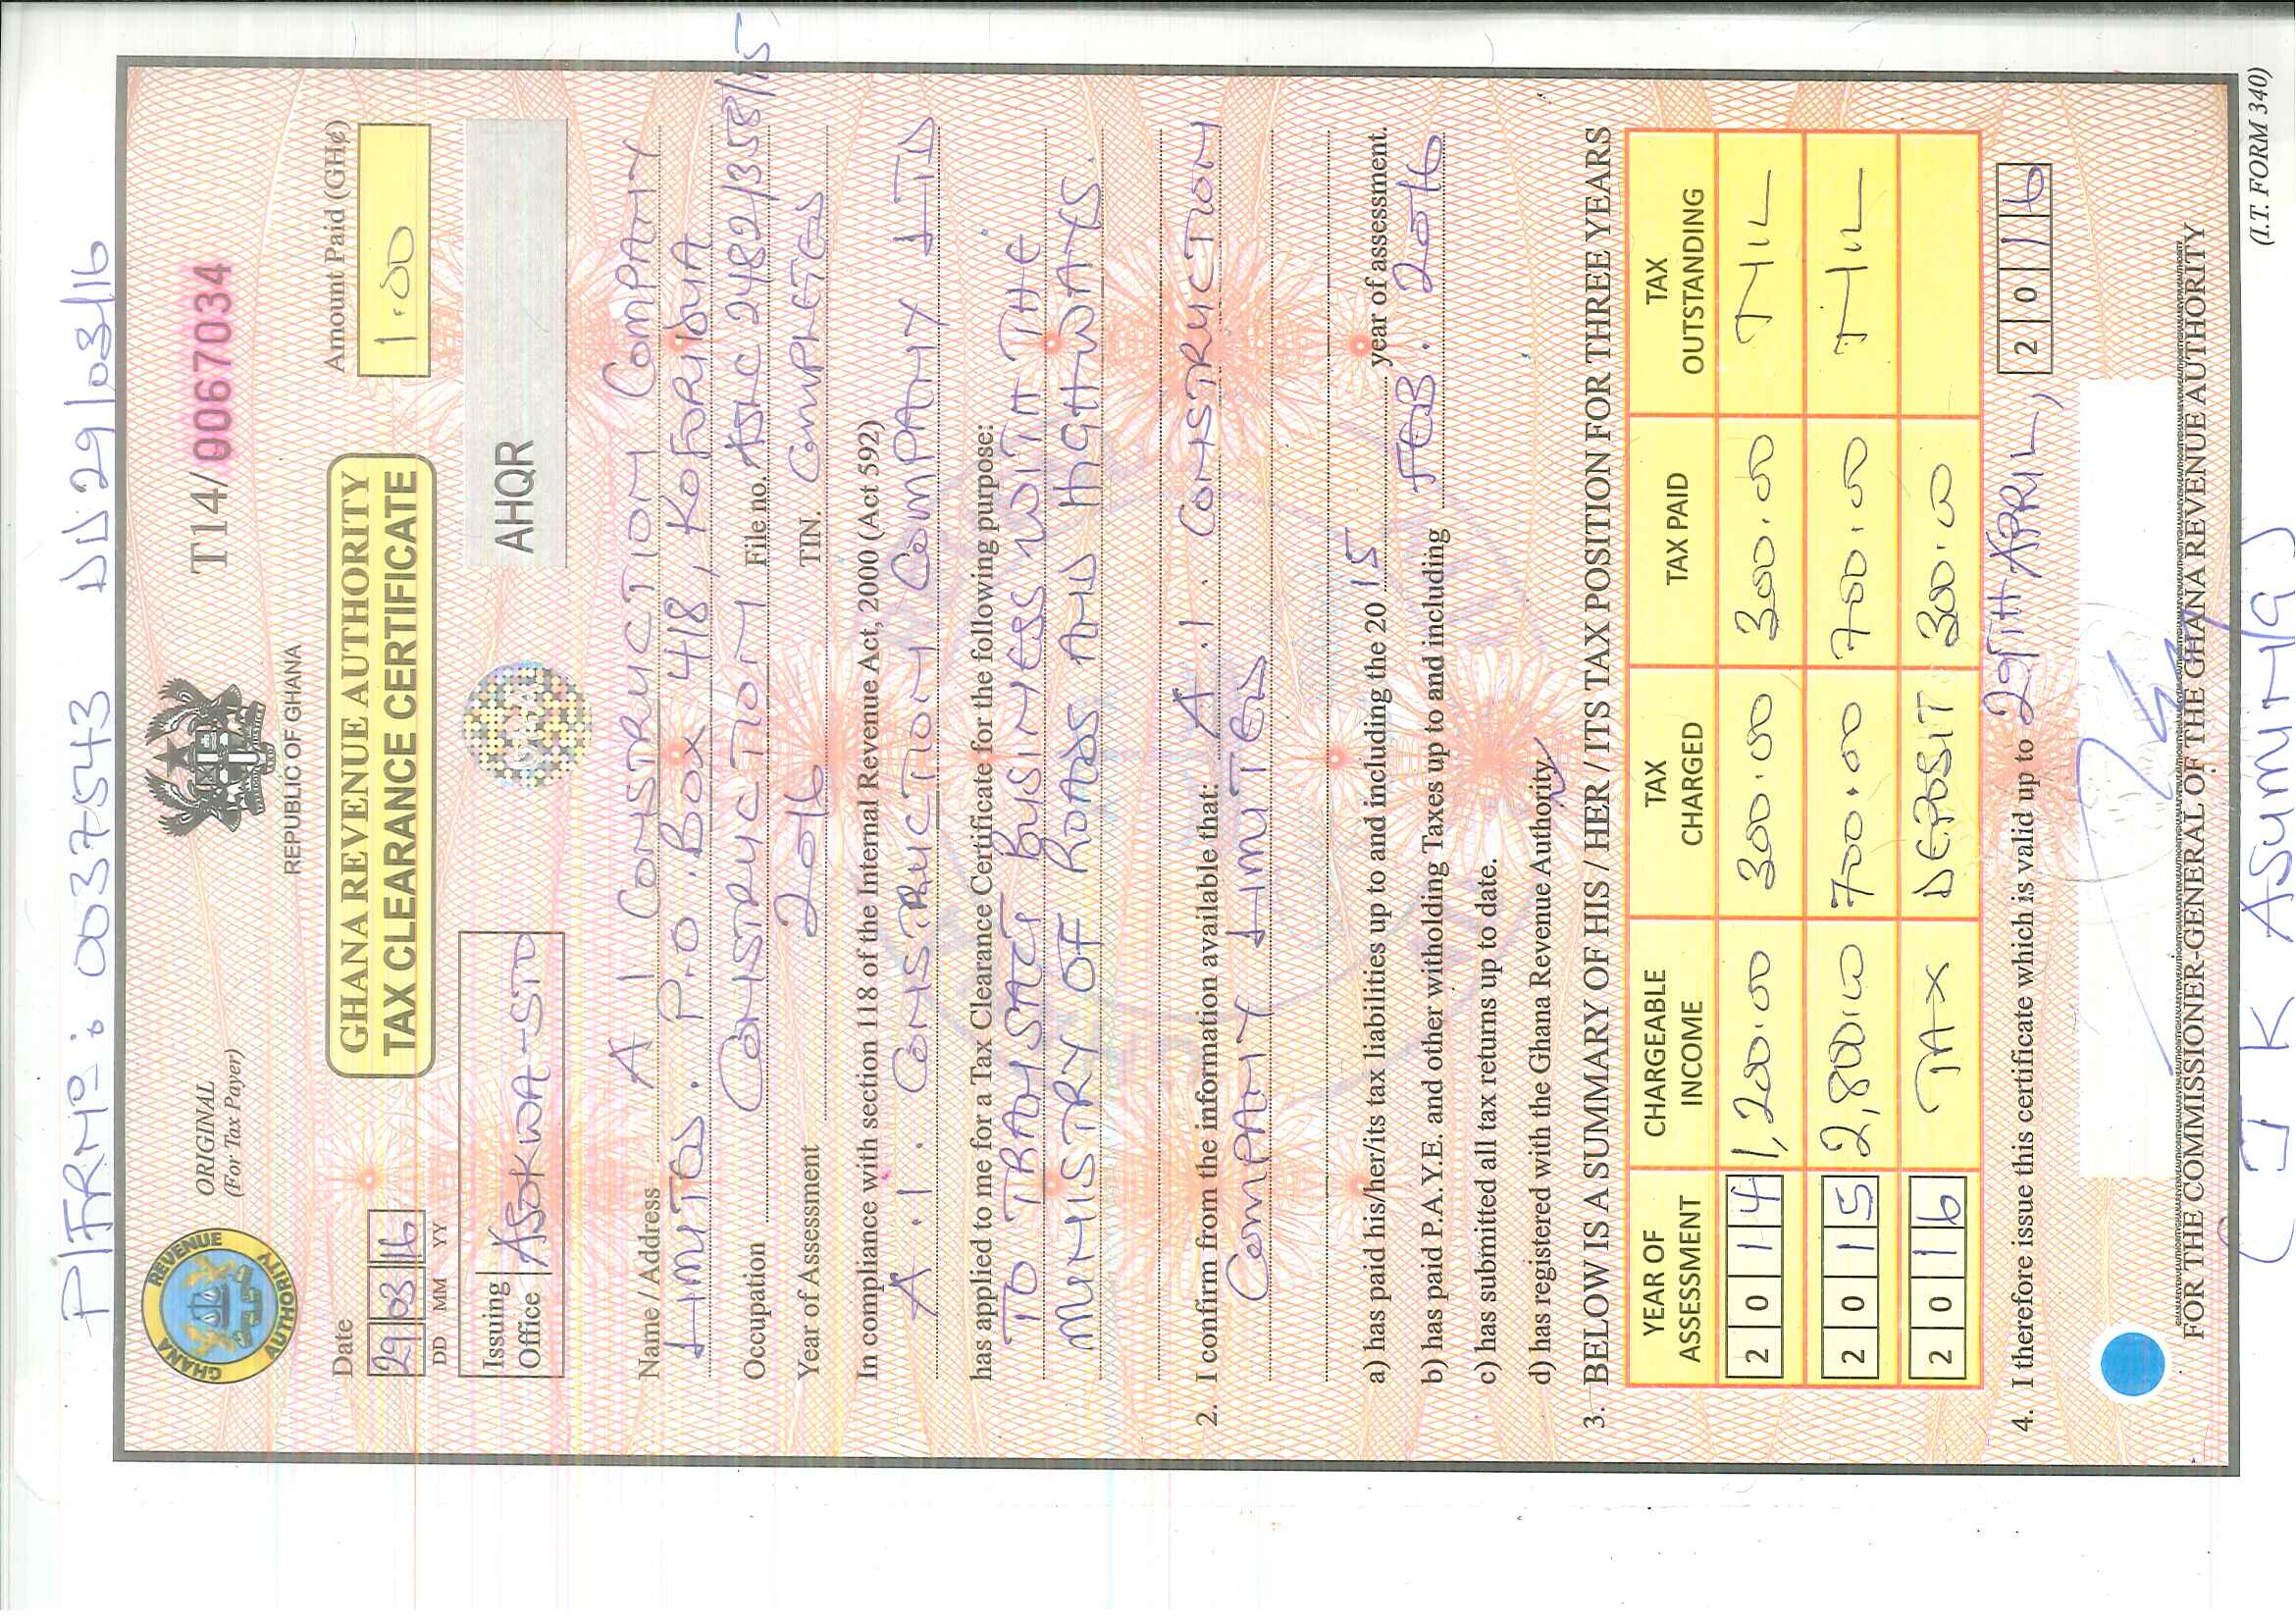 PIFRNº: 0037543 DD 29/03/16
ORIGINAL
(For Tax Payer)
T14/0067034
REPUBLIC OF GHANA
GHANA REVENUE AUTHORITY
GHANA REVENUE AUTHORITY
TAX CLEARANCE CERTIFICATE
Date
29 03 16
DD MM YY
Amount Paid (GH¢)
1.00
Issuing Office ASOKWA-STO
AHQR
Name / Address A 1 CONSTRUCTION COMPANY
LIMITED. P.O.BOX 418, KOFORIDUA
Occupation CONSTRUCTION File no. 2482/358/15
Year of Assessment 2016 TIN. COMPLETED
In compliance with section 118 of the Internal Revenue Act, 2000 (Act 592)
A.1. CONSTRUCTION COMPANY LTD
has applied to me for a Tax Clearance Certificate for the following purpose:
TO TRANSACT BUSINESS WITH THE
MINISTRY OF ROADS AND HIGHWAYS.
2. I confirm from the information available that: A.1. CONSTRUCTION
COMPANY LIMITED
a) has paid his/her/its tax liabilities up to and including the 2015 year of assessment.
b) has paid P.A.Y.E. and other withholding Taxes up to and including FEB. 2016
c) has submitted all tax returns up to date.
d) has registered with the Ghana Revenue Authority
3. BELOW IS A SUMMARY OF HIS / HER / ITS TAX POSITION FOR THREE YEARS
YEAR OF ASSESSMENT CHARGEABLE INCOME TAX CHARGED TAX PAID TAX OUTSTANDING
2014 1,200.00 300.00 300.00 NIL
2015 2,800.00 700.00 700.00 NIL
2016 TAX DEPOSIT 300.00
4. I therefore issue this certificate which is valid up to 29TH APRIL, 2016
FOR THE COMMISSIONER-GENERAL OF THE GHANA REVENUE AUTHORITY
(I.T. FORM 340)